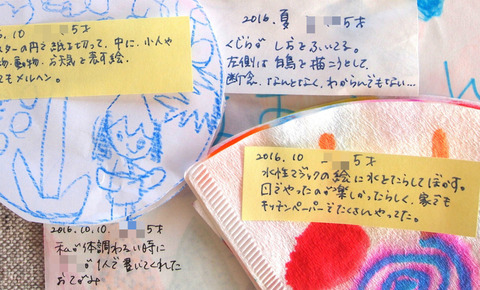 6.10 5才
スターの円で紙を切って、中に、小人や
物、動物、お天気を表す絵。
てもメルヘン。
2016.夏 5才
くじらが しおをふいてる。
左側は自鳥を描こうとして、
断念。なんとなく、わからんでもない…
2016.10 5才
水性マジックの絵に水をたらしてぼかす。
園でやったのが楽しかったらしく、家でも
キッチンペーパーでたくさんやってた。
2016.10.10. 5才
私が体調わるい時に
が1人で書いてくれた
おてがみ